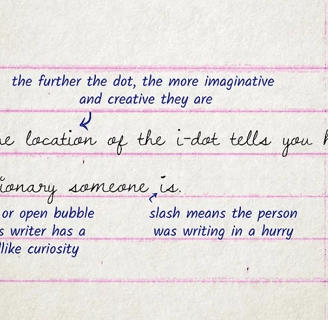 the further the dot, the more imaginative
and creative they are
location of the i-dot tells you
someone is.
or open bubble
writer has a
curiosity
slash means the person
was writing in a hurry